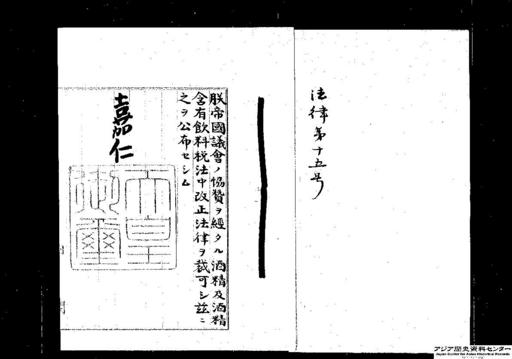 法律第十五号
朕帝國議會ノ協賛ヲ經タル酒精及酒精
含有飲料税法中改正法律ヲ裁可シ茲ニ
之ヲ公布セシム
嘉仁
天皇
御璽
アジア歴史資料センター
Japan Center for Asian Historical Records